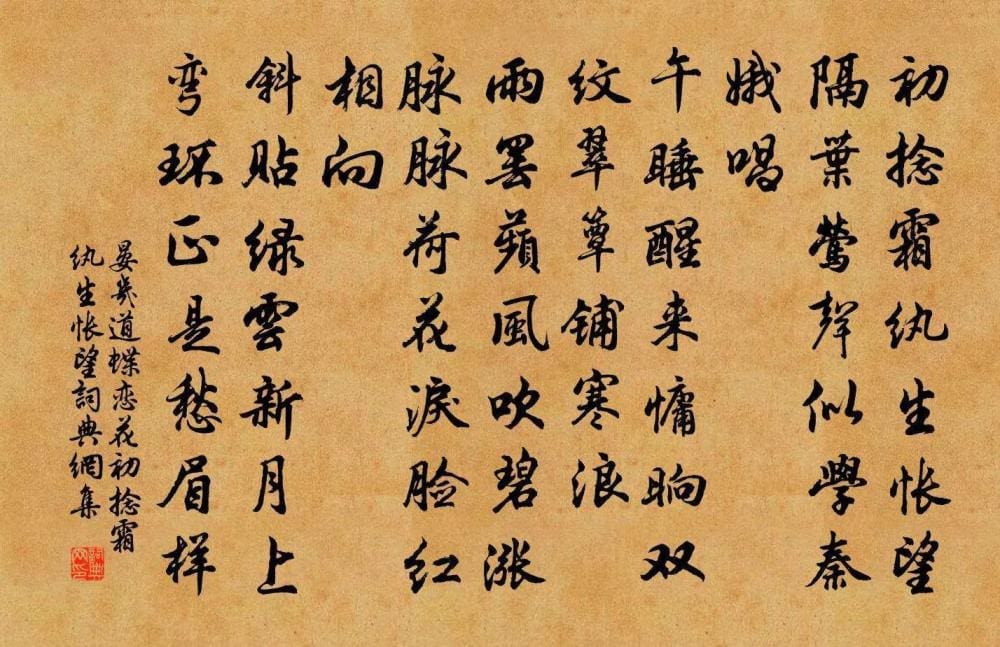 初捻霜纨生怅望
隔葉鶯聲似學秦
娥唱
午睡醒来慵晌双
纹翠簟铺寒浪
雨罢蘋風吹碧涨
脉脉荷花淚脸红
相向
斜贴绿雲新月上
弯环正是愁眉样
晏幾道蝶恋花初捻霜
纨生怅望詞典網集